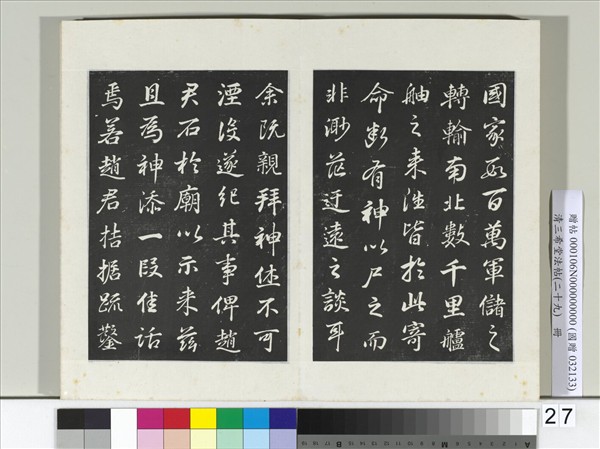 國家數百萬軍儲之
轉輸南北數千里艫
舳之來往皆於此寄
命斷有神以尸之而
非渺茫迂遠之談耳
余既親拜神休不可
湮沒遂紀其事俾趙
君石於廟以示來茲
且為神添一段佳話
焉若趙君拮据疏鑿
贈帖 000106N000000000 (國贈 032133)
清三希堂法帖(二十九) 冊
27